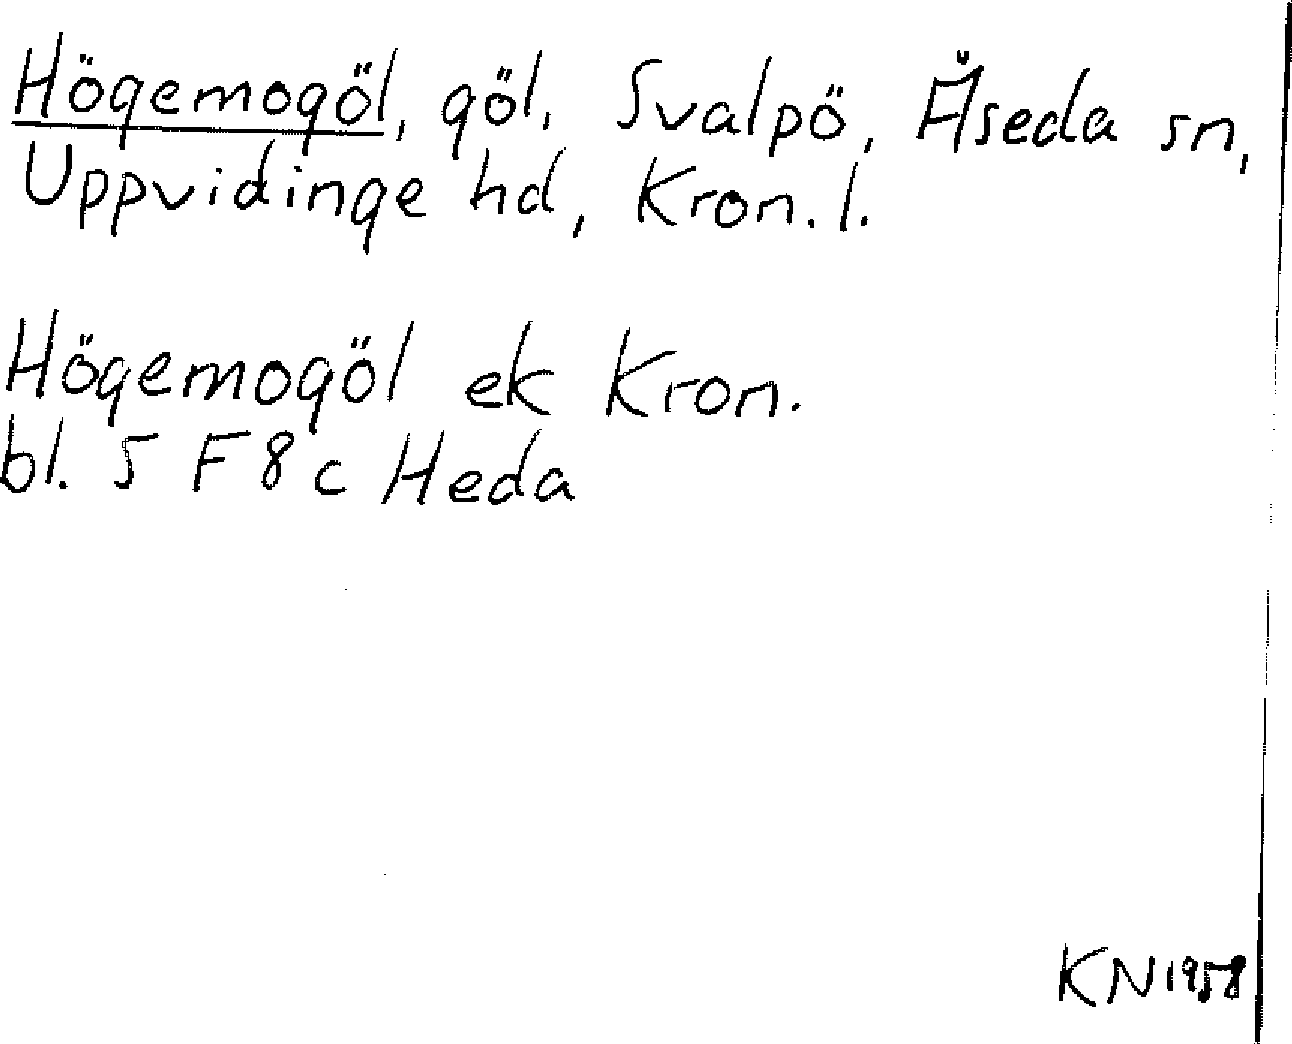 Högemogöl, göl, Svalpö, Åseda sn,
Uppvidinge hd, Kron. l.
Högemogöl ek Kron.
bl. 5 F 8 c Heda
KN 1958